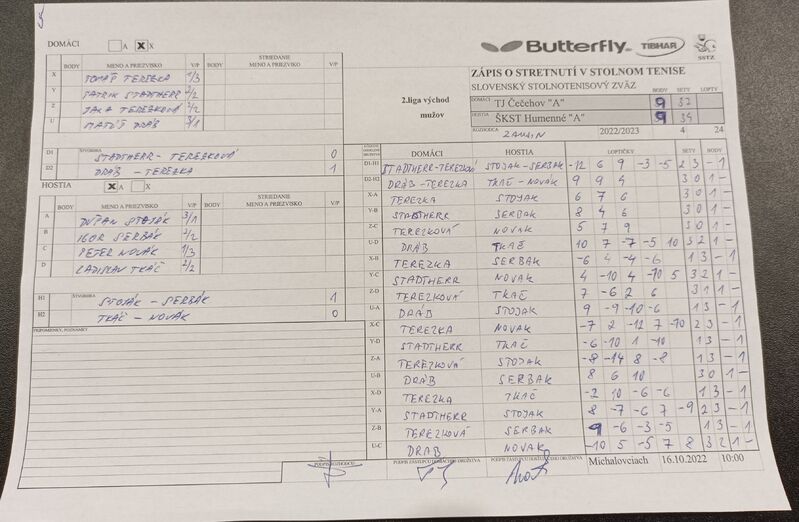 DOMÁCI A X X
Butterfly TIBHAR SSTZ
BODY MENO A PRIEZVISKO V/P BODY STRIEDANIE MENO A PRIEZVISKO V/P
X TOMÁŠ TEREZKA 1/3
Y PATRIK STADTHERR 2/2
Z JANA TEREZKOVÁ 2/2
U MATÚŠ DRÁB 3/1
ZÁPIS O STRETNUTÍ V STOLNOM TENISE
SLOVENSKÝ STOLNOTENISOVÝ ZVÄZ BODY SETY LOPTY
2.liga východ mužov
DOMÁCI TJ Čečehov "A" 9 37
HOSTIA ŠKST Humenné "A" 9 34
ROZHODCA 2022/2023 4 24
D1 ŠTVORHRA STADTHERR - TEREZKOVÁ 0
D2 DRÁB - TEREZKA 1
HOSTIA X A X
BODY MENO A PRIEZVISKO V/P BODY STRIEDANIE MENO A PRIEZVISKO V/P
A DUŠAN STOJÁK 3/1
B IGOR SERBÁK 2/2
C PETER NOVÁK 1/3
D LADISLAV TKÁČ 2/2
H1 ŠTVORHRA STOJÁK - SERBÁK 1
H2 TKÁČ - NOVÁK 0
PRIPOMIENKY, POZNÁMKY
DOMÁCI HOSTIA LOPTIČKY SETY BODY
D1-H1 STADTHERR-TEREZKOVÁ STOJAK - SERBAK -12 6 9 -3 -5 2 3 - 1
D2-H2 DRÁB - TEREZKA TKÁČ - NOVÁK 9 9 4 3 0 1 -
X-A TEREZKA STOJAK 6 7 6 3 0 1 -
Y-B STADTHERR SERBAK 8 4 6 3 0 1 -
Z-C TEREZKOVÁ NOVAK 5 7 9 3 0 1 -
U-D DRÁB TKÁČ 10 7 -7 -5 10 3 2 1 -
X-B TEREZKA SERBAK -6 4 -4 -6 1 3 - 1
Y-C STADTHERR NOVAK 4 -10 4 -10 5 3 2 1 -
Z-D TEREZKOVÁ TKAČ 7 -6 2 6 3 1 1 -
U-A DRÁB STOJAK 9 -9 -10 -6 1 3 - 1
X-C TEREZKA NOVAK -7 2 -12 7 -10 2 3 - 1
Y-D STADTHERR TKAČ -6 -10 1 -10 1 3 - 1
Z-A TEREZKOVÁ STOJAK -8 -14 8 -8 1 3 - 1
U-B DRÁB SERBAK 8 6 10 3 0 1 -
X-D TEREZKA TKAČ -2 10 -6 -6 1 3 - 1
Y-A STADTHERR STOJAK 8 -7 -6 7 -9 2 3 - 1
Z-B TEREZKOVÁ SERBAK 9 -6 -3 -5 1 3 - 1
U-C DRÁB NOVAK -10 5 -5 7 8 3 2 1 -
PODPIS ROZHODCU PODPIS ZÁSTUPCU DOMÁCEHO DRUŽSTVA PODPIS ZÁSTUPCU HOSŤUJÚCEHO DRUŽSTVA Michalovciach 16.10.2022 10:00